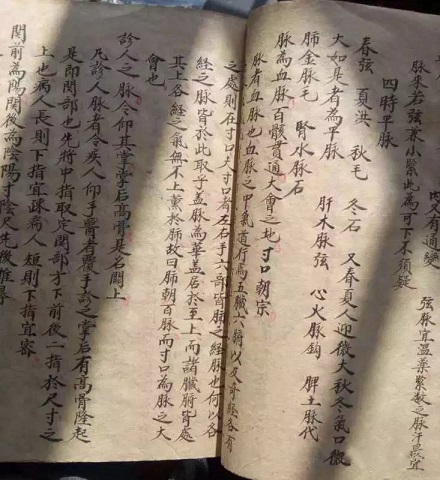 內有通變
弦脈宜溫藥緊數之脈汗最宜
脈來若弦兼小緊此為可下不須疑
四時平脈
春弦 夏洪 秋毛 冬石 又春夏人迎微大秋冬氣口微
大如是者為平脈
肺金脈毛 腎水脈石 肝木脈弦 心火脈鈎 脾土脈代
脈為血脈百骸貫通大會之地寸口朝宗
脈者血脈也血脈之中氣道行焉五臟六腑以及奇經各有
之處則在寸口夫寸口者左右手六部皆肺之經脈也何以各
經之脈皆於此取乎蓋肺為華蓋居於至上而諸臟腑皆處
其上各經之氣無不上薰於肺故曰肺朝百脈而寸口為脈之大
會也
診人之脈令仰其掌掌后高骨是名關上
凡診人脈者令疾人仰手醫者覆手診之掌后有高骨隆起
是即關部也先將中指取定關部方下前後二指於尺寸之
上也病人長則下指宜疎病人短則下指宜密
關前為陽關後為陰陽寸陰尺先後推尋